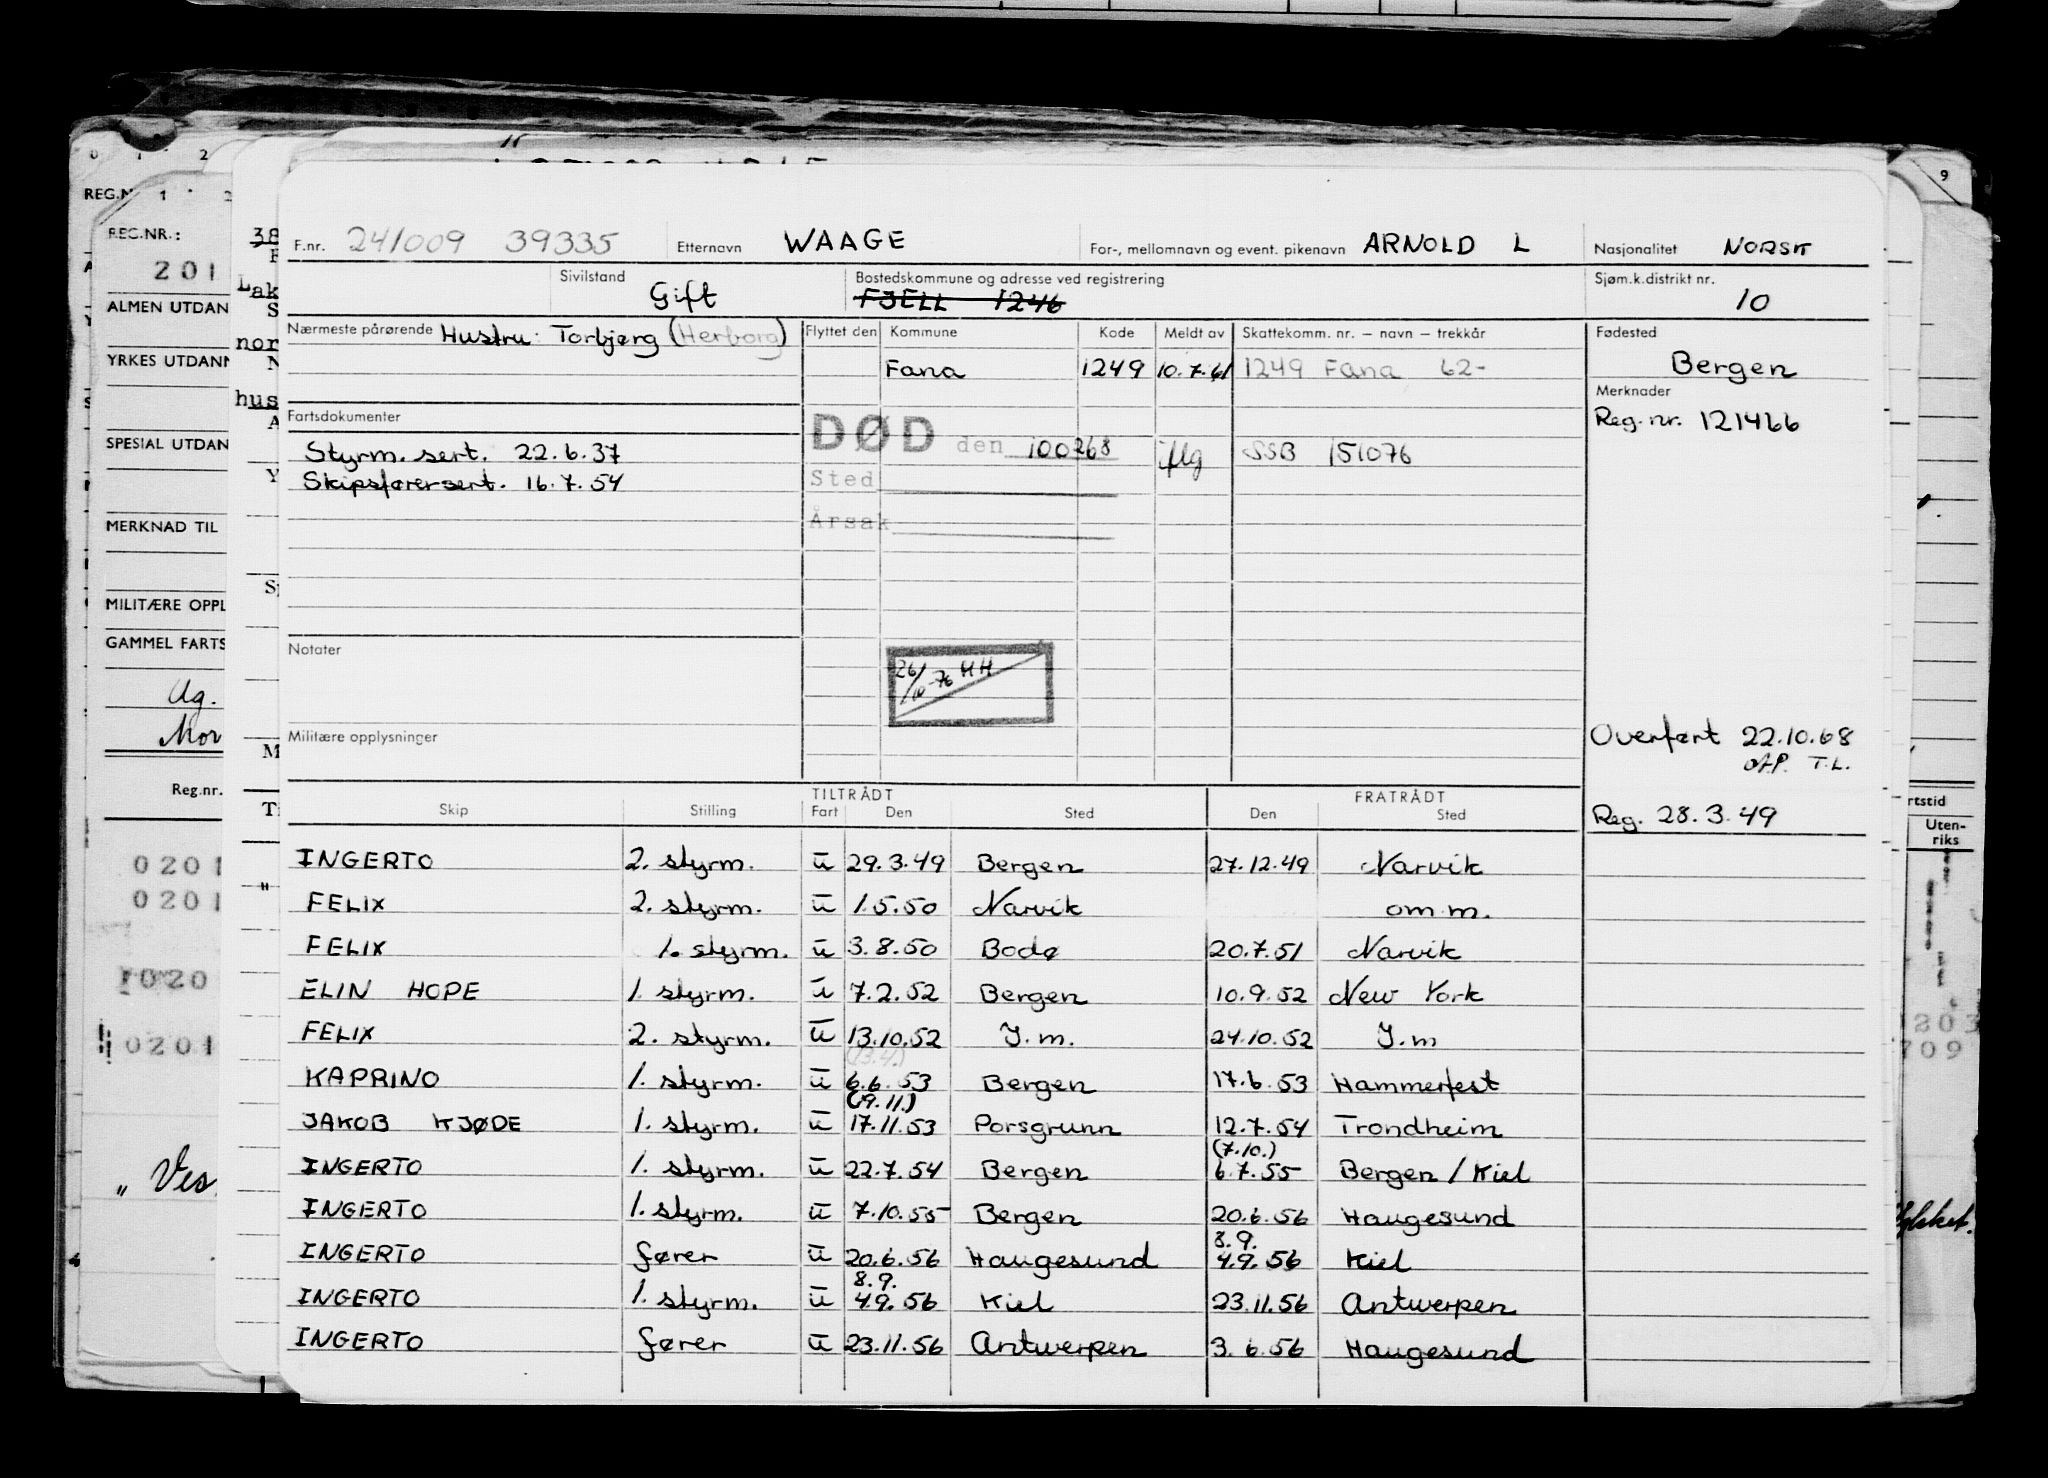 0 1 2
9
REG.N
1 2
REG.NR.:
201
ALMEN UTDAN
YRKES UTDANN
SPESIAL UTDAN
MERKNAD TIL
MILITÆRE OPPL
GAMMEL FARTS
Ag.
Mor
Reg.nr.
0201
0201
1020
0201
„ Ves.
38
Lak
nor
hus
F.nr. 241009 39335 Etternavn WAAGE For-, mellomnavn og event. pikenavn ARNOLD L Nasjonalitet NORSK
Sivilstand Gift Bostedskommune og adresse ved registrering FJELL 1246 Sjøm.k.distrikt nr. 10
Nærmeste pårørende Hustru: Torbjørg (Herborg) Flyttet den Kommune Kode Meldt av Skattekomm. nr. – navn – trekkår Fødested
Fana 1249 10.7.61 1249 Fana 62- Bergen
Merknader
Fartsdokumenter Reg.nr. 121466
Styrm. sert. 22.6.37 DØD den 100268 flg SSB 151076
Skipsførersert. 16.7.54 Sted
Årsak
Notater
26/10-76 HH
Militære opplysninger Overført 22.10.68
T.L.
TILTRÅDT FRATRÅDT
Skip Stilling Fart Den Sted Den Sted Reg. 28.3.49
INGERTO 2. styrm. u 29.3.49 Bergen 27.12.49 Narvik
FELIX 2. styrm. u 1.5.50 Narvik om.m.
FELIX 1. styrm. u 3.8.50 Bodø 20.7.51 Narvik
ELIN HOPE 1. styrm. u 7.2.52 Bergen 10.9.52 New York
FELIX 2. styrm. u 13.10.52 J.m. 24.10.52 J.m
(13.4.)
KAPRINO 1. styrm. u 6.6.53 Bergen 17.6.53 Hammerfest
(19.11.)
JAKOB KJØDE 1. styrm. u 17.11.53 Porsgrunn 12.7.54 Trondheim
(7.10.)
INGERTO 1. styrm. u 22.7.54 Bergen 6.7.55 Bergen / Kiel
INGERTO 1. styrm. u 7.10.55 Bergen 20.6.56 Haugesund
8.9.
INGERTO fører u 20.6.56 Haugesund 4.9.56 Kiel
8.9.
INGERTO 1. styrm. u 4.9.56 Kiel 23.11.56 Antwerpen
INGERTO fører u 23.11.56 Antwerpen 3.6.56 Haugesund
rtstid
Uten-
riks
203
709